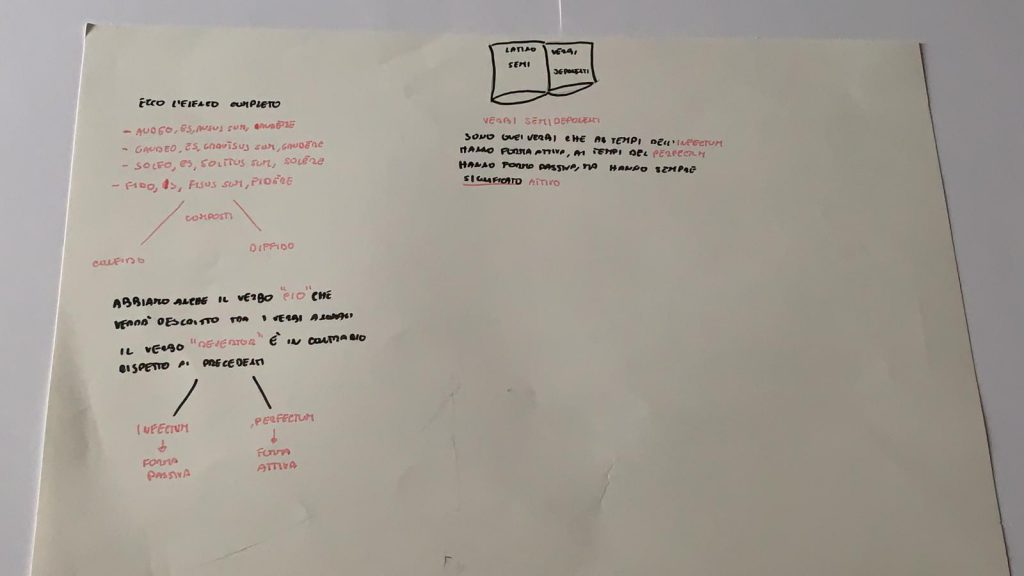 LATINO
SEMI
VERBI
DEPONENTI
VERBI SEMIDEPONENTI
SONO QUEI VERBI CHE AI TEMPI DELL'INFECTUM
HANNO FORMA ATTIVA, AI TEMPI DEL PERFECTUM
HANNO FORMA PASSIVA, MA HANNO SEMPRE
SIGNIFICATO ATTIVO
ECCO L'ELENCO COMPLETO
- AUDEO, ES, AUSUS SUM, AUDĒRE
- GAUDEO, ES, GAVISUS SUM, GAUDĒRE
- SOLEO, ES, SOLITUS SUM, SOLĒRE
- FIDO, IS, FISUS SUM, FIDĔRE
COMPOSTI
CONFIDO
DIFFIDO
ABBIAMO ANCHE IL VERBO "FIO" CHE
VERRÀ DESCRITTO TRA I VERBI ANOMALI
IL VERBO "REVERTOR" È IN CONTRARIO
RISPETTO AI PRECEDENTI
INFECTUM
PERFECTUM
FORMA
PASSIVA
FORMA
ATTIVA